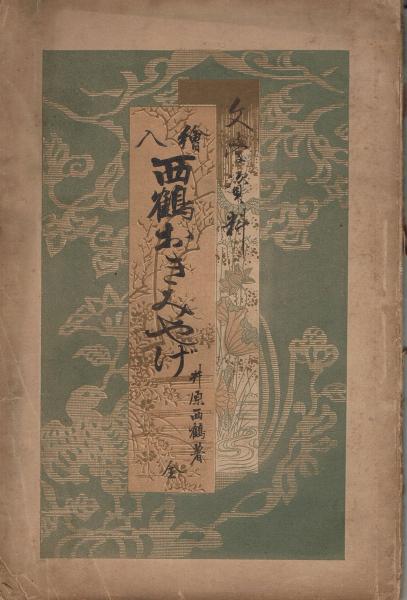 文学資料
繪入
西鶴おきみやげ
井原西鶴著
全